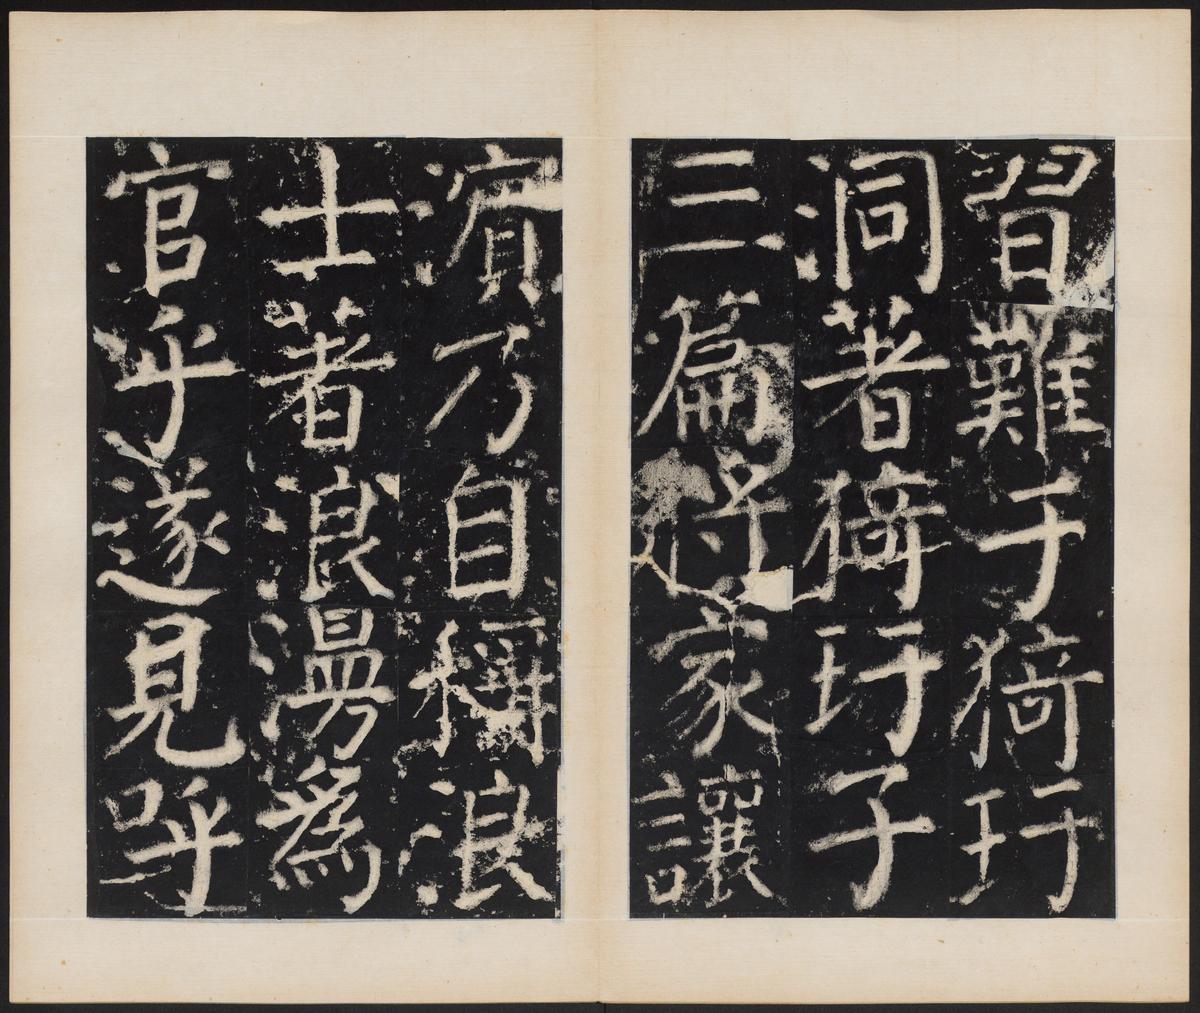 習難于猗玗
洞著猗玗子
三篇將家讓
濱乃自稱浪
士著浪漫爲
官乎遂見呼